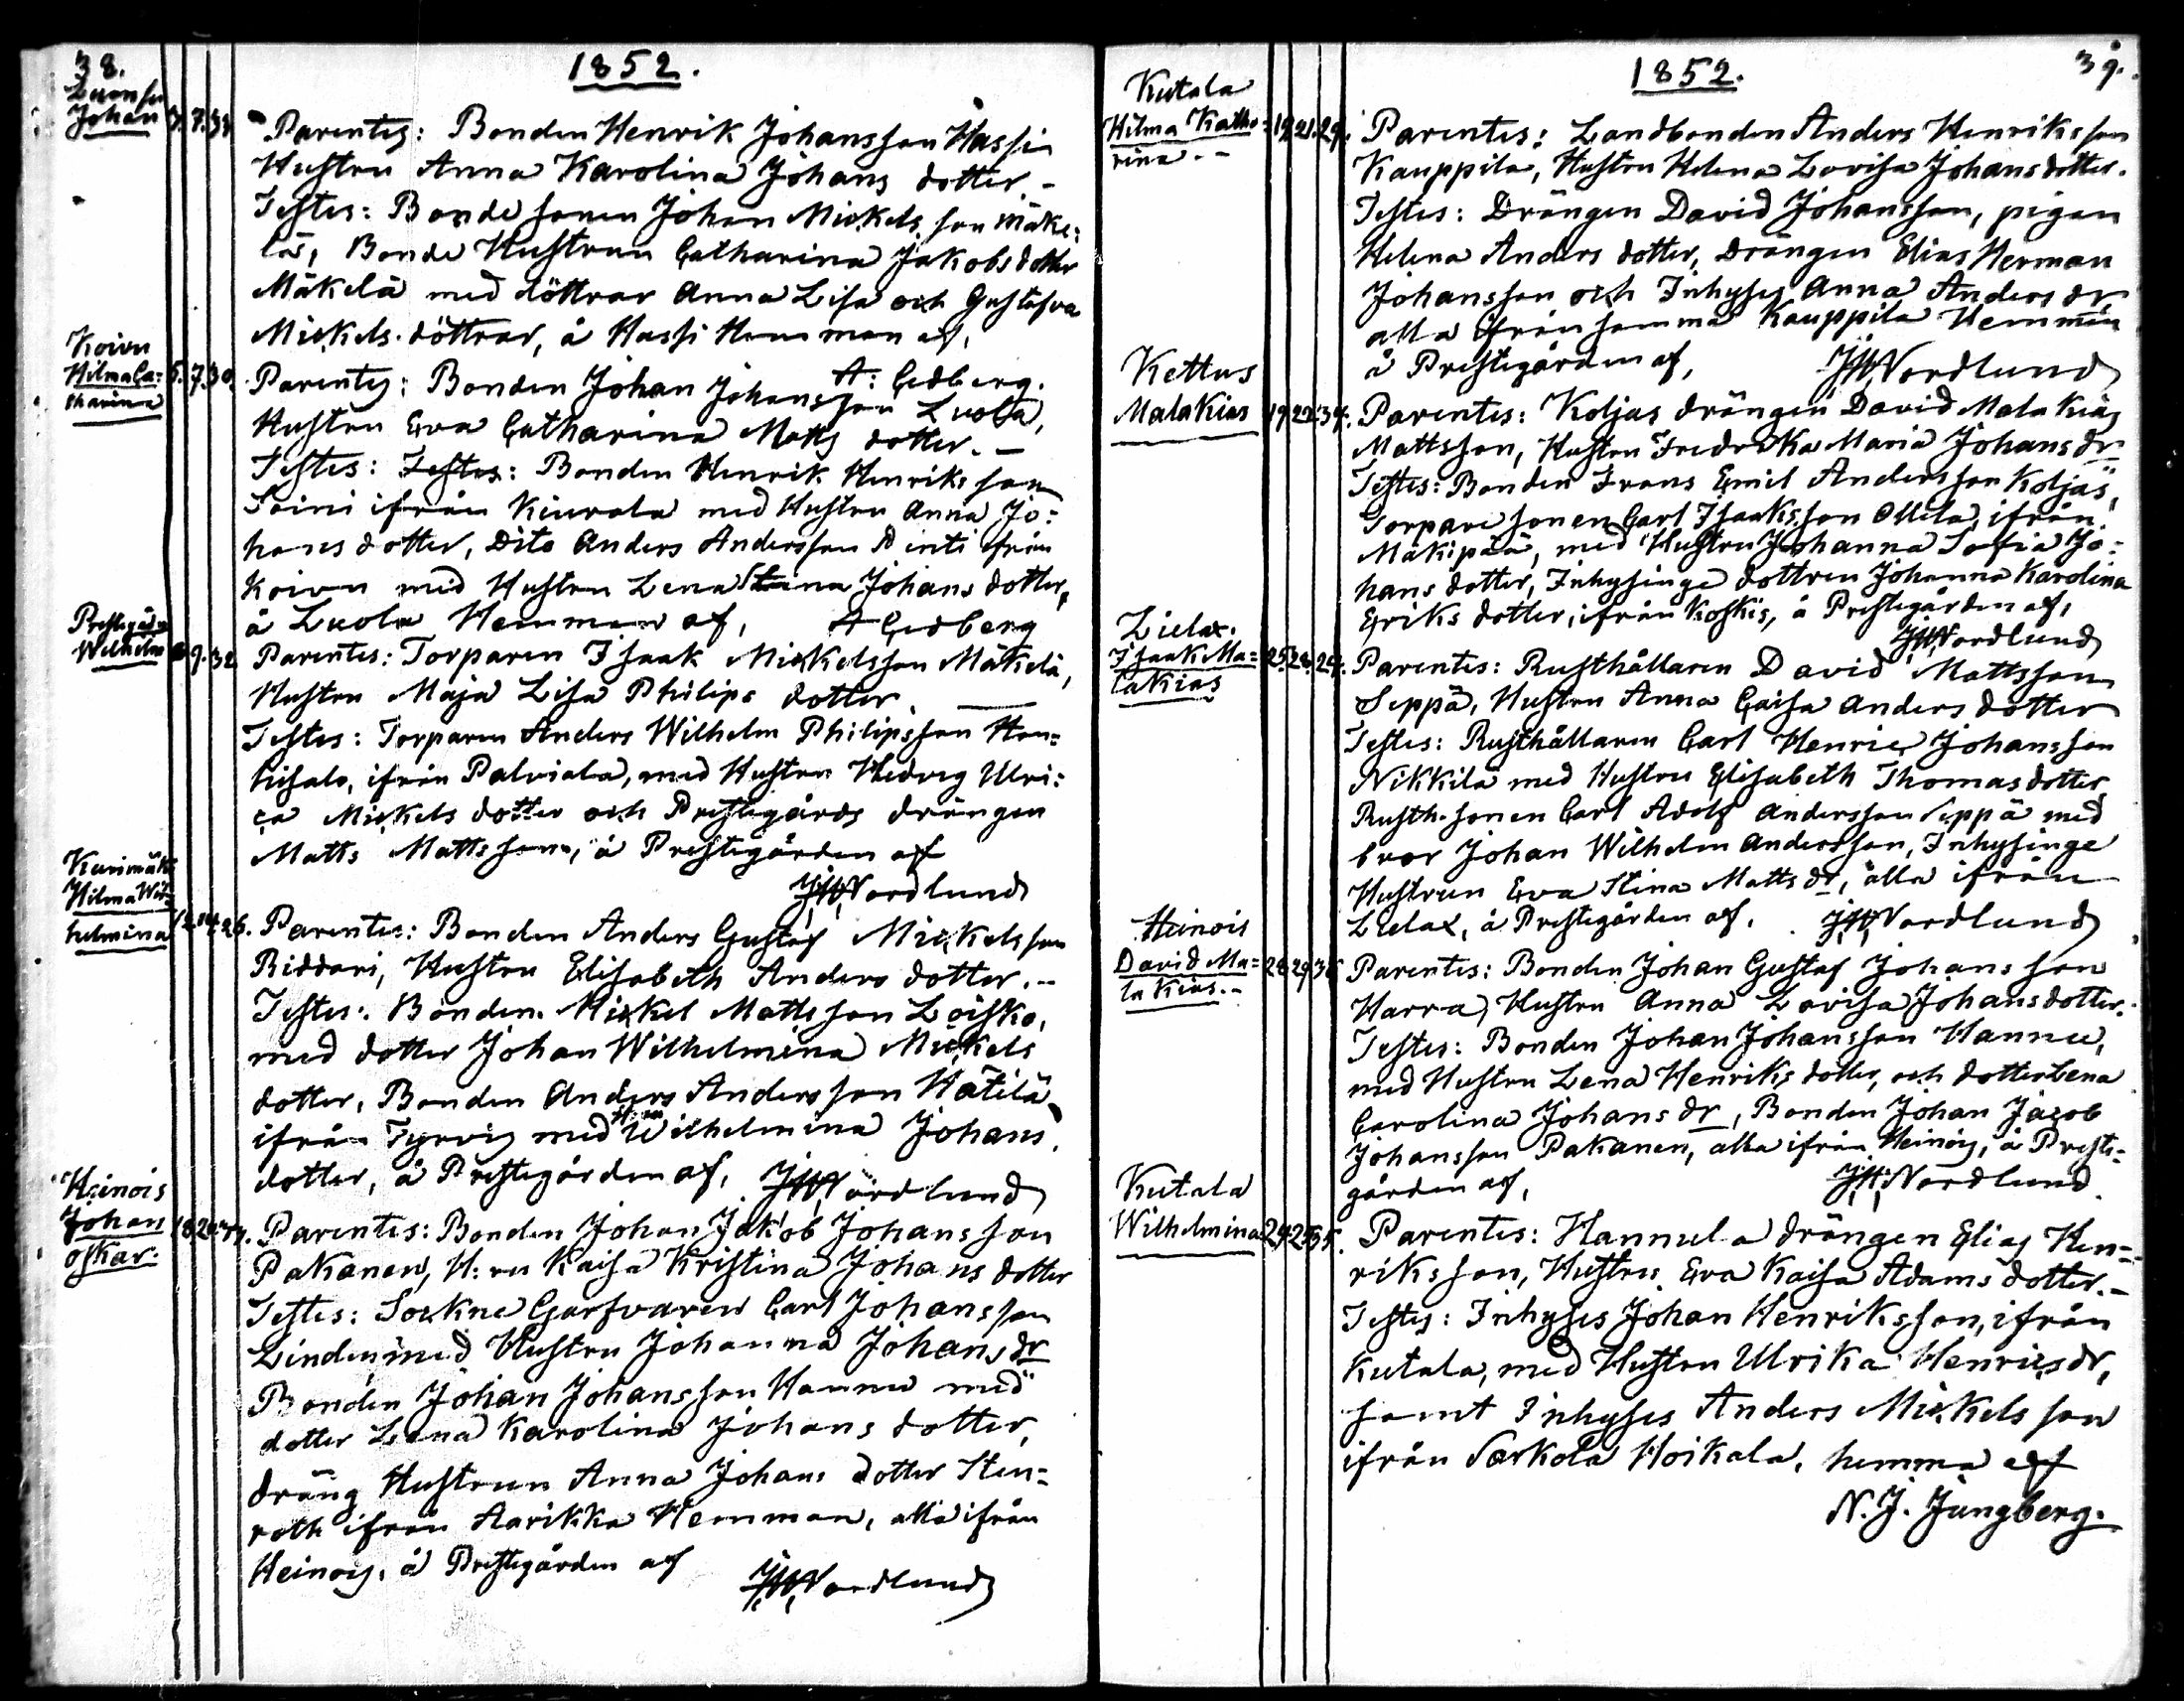 38.
1852.
Johan 3. 7. 33
Parentes: Bonden Henrik Johansson Hassi
Hustru Anna Karolina Johans dotter.-
Testes: Bonde sonen Johan Mickels son Mäke:
lä, Bonde Hustrun Catharina Jakobs dotter
Mäkelä med döttrar Anna Lisa och Gustafva
Mickels döttrar, å Hassi Hemman af,
A: Cedberg.
Koivu
Hilma Ca= 5. 7. 30
tharina
Parentes: Bonden Johan Johansson Luola,
Hustru Eva Catharina Matts dotter.-
Testes: Testes: Bonden Henrik Henriks son
Soini ifrån Kiurala med Hustru Anna Jo:
hans dotter, Dito Anders Andersson Pinti ifrån
Koivu med Hustru Lena Stina Johans dotter,
å Luola Hemman af, A Cedberg
Prestegården
Wilhelm 8 9. 32
Parentes: Torparen Isaak Mickelsson Mäkelä,
Hustru Maja Lisa Philips dotter.
Testes: Torparen Anders Wilhelm Philipsson Hon=
kisalo, ifrån Palviala, med Hustru Hedvig Ulri:
ca Mickels dotter och Prestegårds drängen
Matts Mattsson, å Prestegården af
JWNordlund
Karimäki
Hilma Wil=
helmina 12. 14. 26.
Parentes: Bonden Anders Gustaf Mickelsson
Riddari, Hustru Elisabeth Anders dotter.-
Testes: Bonden Mickel Mattsson Loisko,
med dotter Johan Wilhelmina Mickels
dotter, Bonden Anders Andersson Hätilä
ifrån Tyrvis med H:ru Wilhelmina Johans
dotter, å Prestegården af, JWNordlund
Heinois
Johan 18. 20.
Oskar.
Parentes: Bonden Johan Jakob Johansson
Pakanen, H:ru Kaisa Kristina Johans dotter
Testes: Sockne Garfvaren Carl Johansson
Linden, med Hustru Johanna Johans dr
Bonden Johan Johansson Hannu med
dotter Lena Karolina Johans dotter,
dräng Hustrun Anna Johans dotter Sten=
roth ifrån Aarikka Hemman, alla ifrån
Heinois, å Prestegården af
JWNordlund
39.
1852.
Kutala
Hilma Katha= 19. 21. 29.
rina.-
Parentes: Landbonden Anders Henriksson
Kauppila, Hustru Helena Lovisa Johans dotter.
Testes: Drängen David Johansson, pigan
Helena Anders dotter, Drängen Elias Herman
Johansson och Inhyses Anna Anders dr
alla ifrån samma Kauppila Hemman
å Prestegården af, JWNordlund
Kettus
Malakias 19. 22. 34.
Parentes: Koljas drängen David Malakias
Mattsson, Hustru Fredrika Maria Johans dr
Testes: Bonden Frans Emil Andersson Koljas,
Torpare sonen Carl Isaaks son Ollila, ifrån
Mäkipää, med Hustru Johanna Sofia Jo:
hans dotter, Inhysinge dottren Johanna Karolina
Eriks dotter, ifrån Koskis, å Prestegården af,
JWNordlund
Lielax.
Isaak Ma= 25. 28. 29.
lakias
Parentes: Rusthållaren David Mattsson
Seppä, Hustru Anna Caisa Anders dotter
Testes: Rusthållaren Carl Henric Johansson
Nikkilä med Hustru Elisabeth Thomas dotter,
Rusth. sonen Carl Adolf Andersson Seppä med
bror Johan Wilhelm Andersson, Inhysinge
Hustrun Eva Stina Matts dr, alla ifrån
Lielax, å Prestegården af. JWNordlund
Heinois
David Ma= 28. 29.
lakias.-
Parentes: Bonden Johan Gustaf Johansson
Harra, Hustru Anna Lovisa Johans dotter.
Testes: Bonden Johan Johansson Hannu,
med Hustru Lena Henriks dotter, och dotter Lena
Carolina Johans dr, Bonden Johan Jacob
Johansson Pakanen, alla ifrån Heinois, å Preste=
gården af, JWNordlund.
Kutala
Wilhelmina 24. 25. 35.
Parentes: Hannula drängen Elias Hen=
riksson, Hustru Eva Kaisa Adams dotter.-
Testes: Inhyses Johan Henriksson, ifrån
Kutala, med Hustru Ulrika Henrics dr,
samt Inhyses Anders Mickels son
ifrån Sarkola Hoikala, hemma af
N. J. Jungberg.